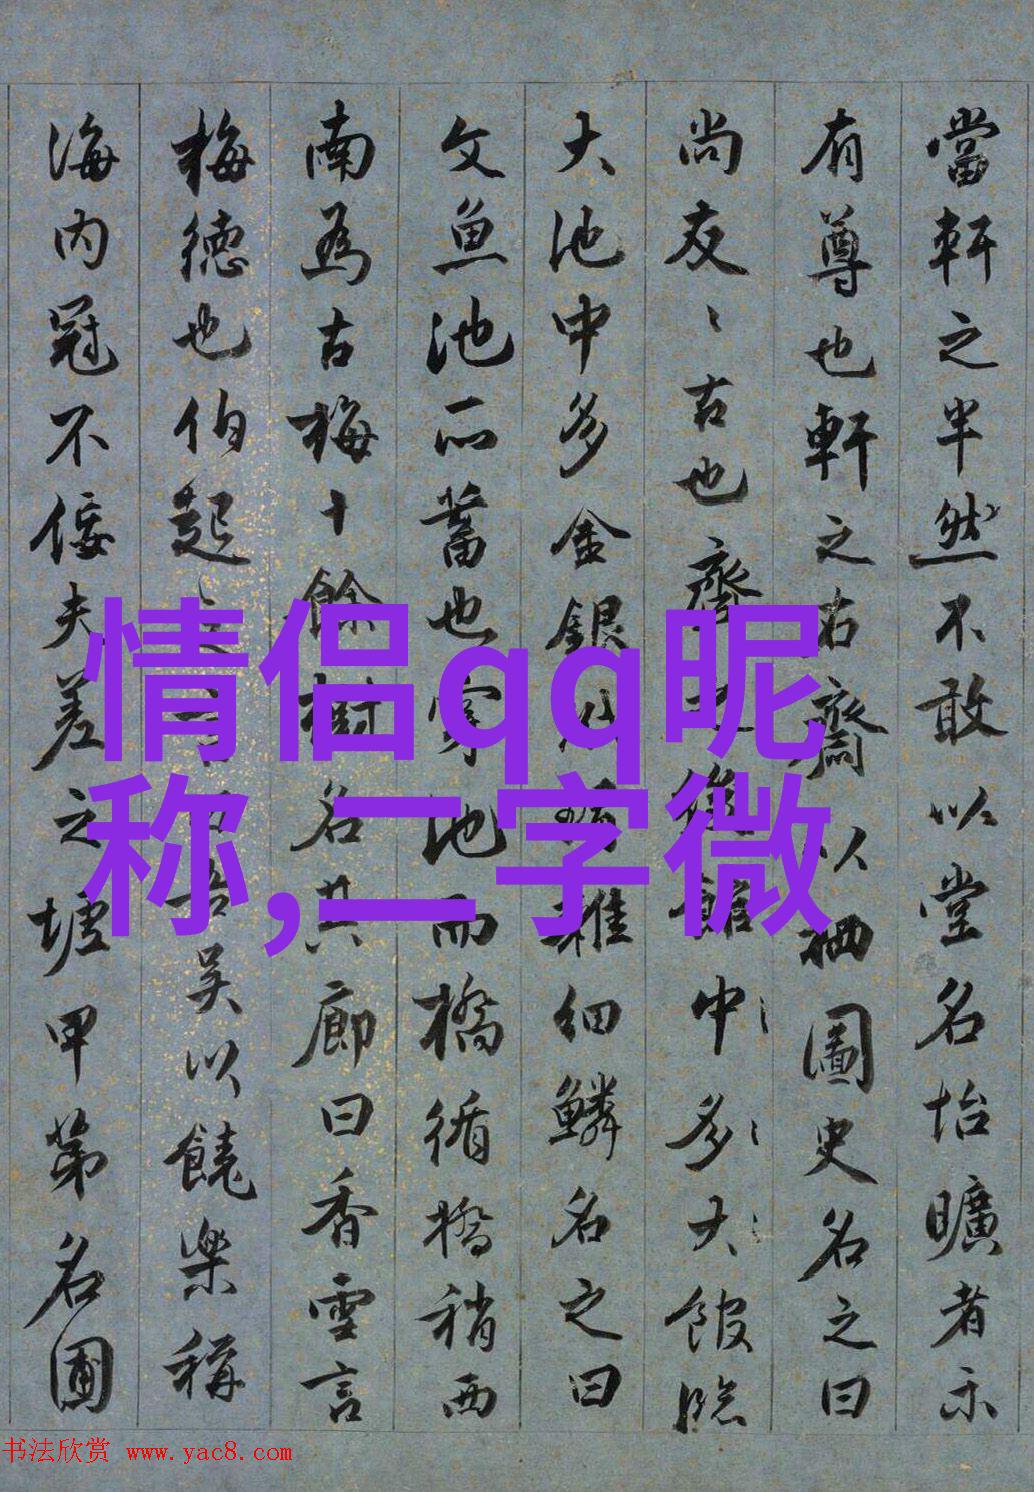 當軒之半然不敢以堂名怡曠者示
有尊也軒之右齋以栖圖史名之曰
尚友〻古也齋之後館中多大館臨
大池中多金銀雜細鱗名之曰
文魚池所蓄也穿池而橋循橋稍西
南為古梅十餘樹名其廊曰香雪言
梅德也伯起吾吳以饒樂稱
海内冠不佞夫差之墟甲第名圃
情侣qq昵
称,二字微
书法欣赏 www.yac8.com